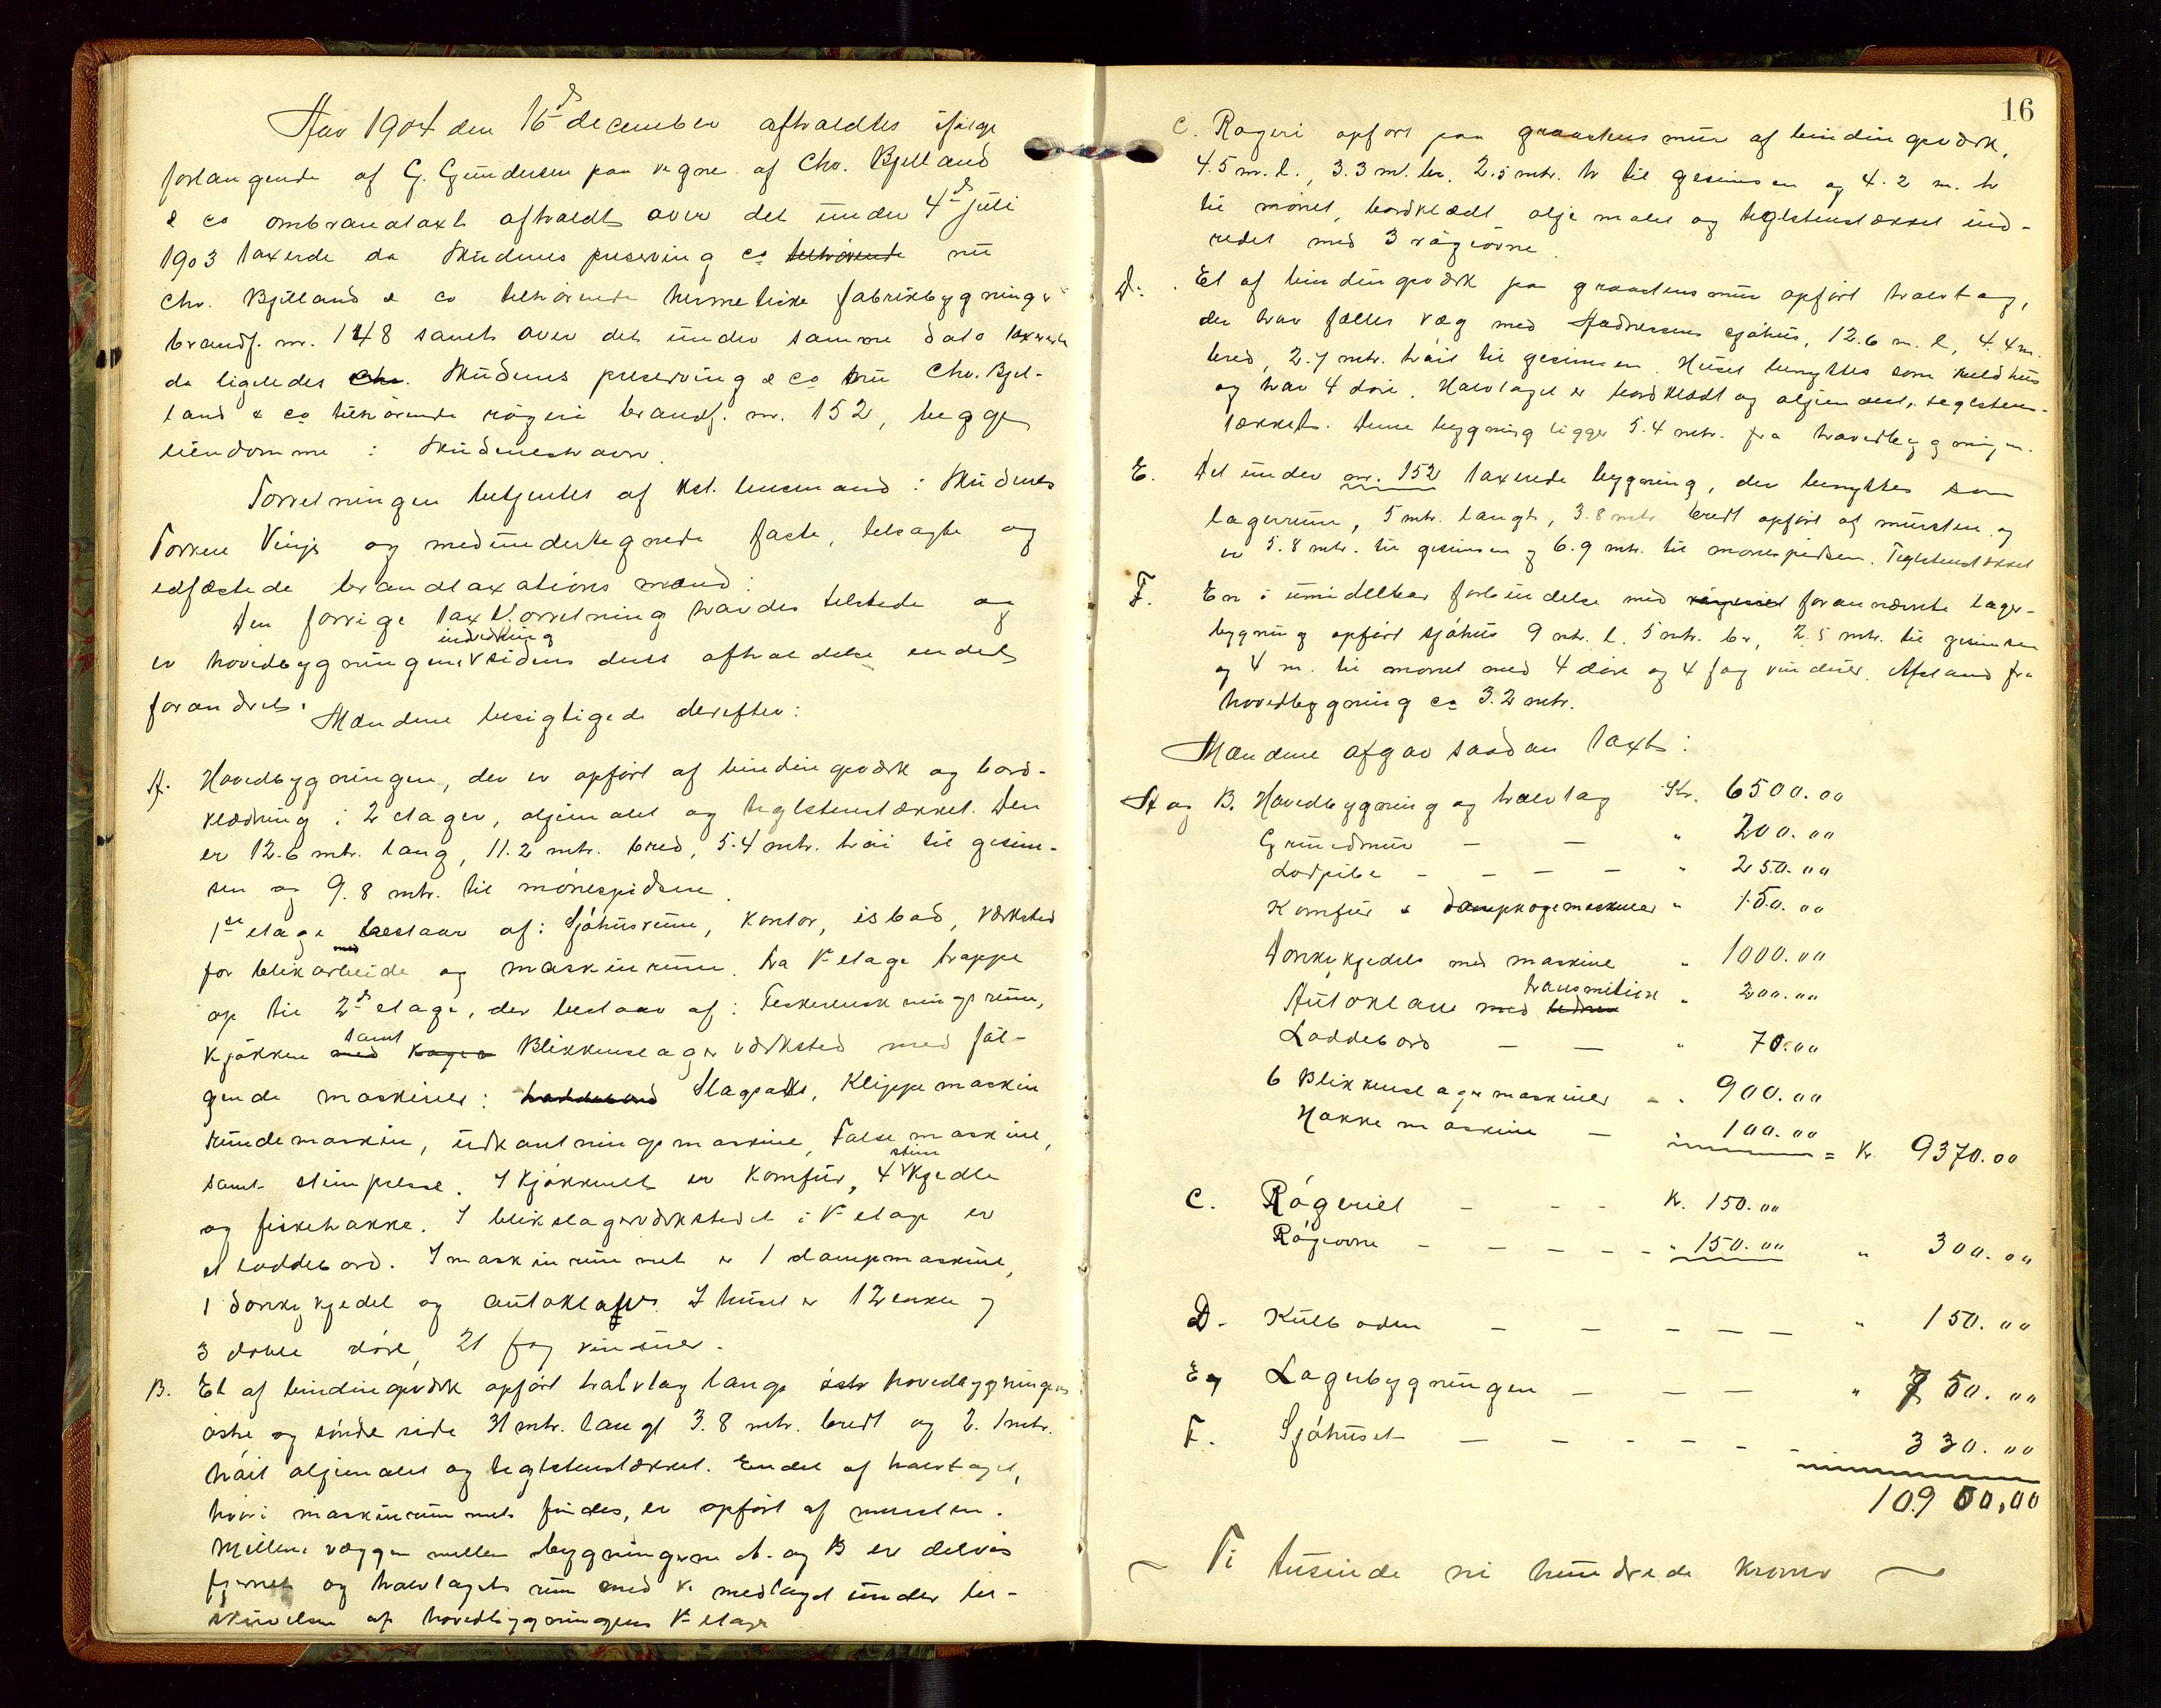 Aar 1904 den 16d december afholdtes ifølge
forlangende af G. Gundersen paa vegne af Chr. Bjelland
& co ombrandtaxt afholdt over det under 4d juli
1903 taxerede da Skudenes preserving co tilhørende nu
Chr. Bjelland & co tilhørende hermetiske fabrikbygninger
brandf. nr. 148 samt over det under samme dato taxerede
da ligeledes Chr. Skudenes preserving & co nu Chr. Bjel-
land & co tilhørende røgeri brandf. nr. 152, begge
eiendomme i Skudeneshavn.
Forretningen betjentes af kst. lensmand i Skudenes
Torkel Vinje og medundertegnede faste, tilsagte og
edfæstede brandtaxationsmænd:
Den forrige taxtforretning havdes tilstede og
er hovedbygningens indredning siden dens afholdelse endel
forandret.
Mændene besigtigede derefter:
A. Hovedbygningen, der er opført af bindingsværk og bord-
klædning i 2 etager, oljemalet og teglstenstækket. Den
er 12.6 mtr. lang, 11.2 mtr. bred, 5.4 mtr. høi til gesim-
sen og 9.8 mtr. til mønespidsen.
1ste etage bestaar af: Sjøhusrum, kontor, isbod, værksted
for blikarbeide med og maskinrum. Fra 1ste etage trappe
op til 2d etage, der bestaar af: rum,
kjøkken med samt Blikkenslagerværksted med føl-
gende maskiner: loddebord Slagsaks, Klippemaskin
Rundemaskin, udkantningsmaskine, Falsemaskine,
samt stimpresse. I kjøkkenet er Komfur, 4 stim kjedle
og fiskehakke. I blikslagerværkstedet i 1ste etage er
et loddebord. I maskinrummet er 1 dampmaskine,
1 donkykjedel og autoklav. I huset er 12 enkle og
3 doble døre, 21 fag vinduer.
B. Et af bindingsværk opført halvtag langs østr hovedbygningens
østre og søndre side 31 mtr. langt 3.8 mtr. bredt og 2.1 mtr.
høit oljemalet og teglstenstækket. Endel af halvtaget,
hvori maskinrummet findes, er opført af mursten.
Mellem væggen mellem bygningerne A. og B er delvis
fjernet og halvtagets rum med medtaget under be-
skrivelsen af hovedbygningens 1ste etage
16
C. Røgeri opført paa graastens mur af bindingsværk,
4.5 m. l., 3.3 m. br. 2.5 mtr. h til gesimsen og 4.2 m. h
til mønet, bordklædt oljemalet og teglstenstækket ind-
redet med 3 røgeovne.
D. Et af bindingsværk paa graastensmur opført halvtag,
der har fælles væg med sjøhus, 12.6 m. l, 4.4 m.
bred, 2.7 mtr. høit til gesimsen. Huset benyttes som kulhus
og har 4 døre. Halvtaget er bordklædt og oljemalet, teglstens-
tækket. Denne bygning ligger 5.4 mtr. fra hovedbygningen.
E. Det under nr. 152 taxerede bygning, der benyttes som
lagerrum, 5 mtr. langt, 3.8 mtr bredt opført af mursten og
er 5.8 mtr. til gesimsen og 6.9 mtr. til mønespidsen. Teglstenstækket
F. En i umidelbar forbindelse med røgeriet forannævnte lager-
bygning opført sjøhus 9 mtr. l. 5 mtr. br, 2.5 mtr. til gesimsen
og 4 m. til mønet med 4 døre og 4 fag vinduer. Afstand fra
hovedbygning ca 3.2 mtr.
Mændene afgav saadan taxt:
A og B. Hovedbygning og halvtag Kr. 6500.00
Grundmur — — " 200.00
Lodpibe - - - - " 250.00
Komfur & dampkogemaskiner " 150.00
Donkykjedel med maskine " 1000.00
Autoklave med transmition " 200.00
Loddebord — — " 70.00
6 Blikkenslagermaskiner - " 900.00
Hakkemaskine — 100.00 = Kr. 9370.00
C. Røgeriet - - - Kr. 150.00
Røgeovne - - - - - " 150.00 " 300.00
D. Kulboden - - - - - " 150.00
E og Lagerbygningen - - - " 750.00
F. Sjøhuset - - - - - - 330.00
10900,00
~ Ti tusinde ni hundrede kroner ~